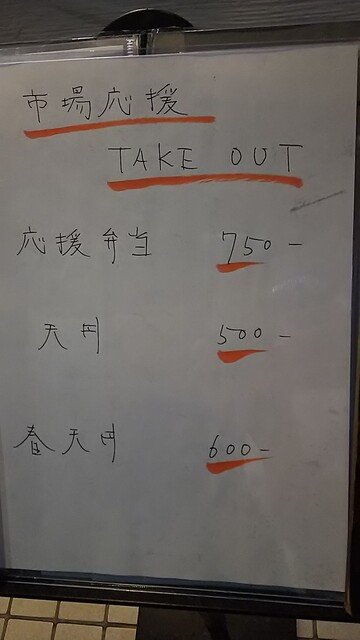 市場応援
TAKE OUT
応援弁当 750-
天丼 500-
春天丼 600-